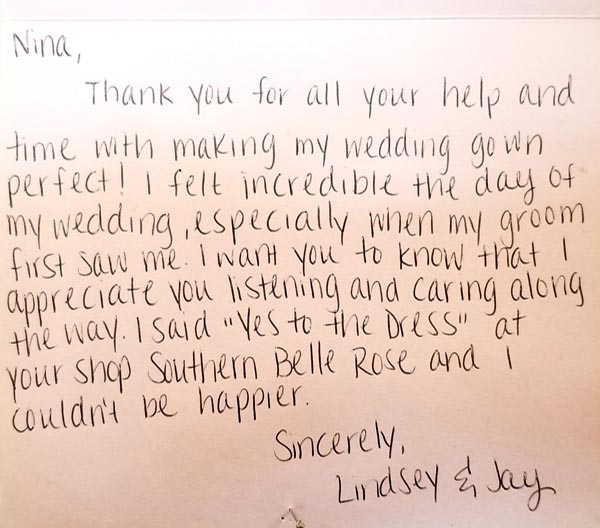 Nina,
Thank you for all your help and
time with making my wedding gown
perfect! I felt incredible the day of
my wedding, especially when my groom
first saw me. I want you to know that I
appreciate you listening and caring along
the way. I said "Yes to the Dress" at
your shop Southern Belle Rose and I
couldn't be happier.
Sincerely,
Lindsey & Jay